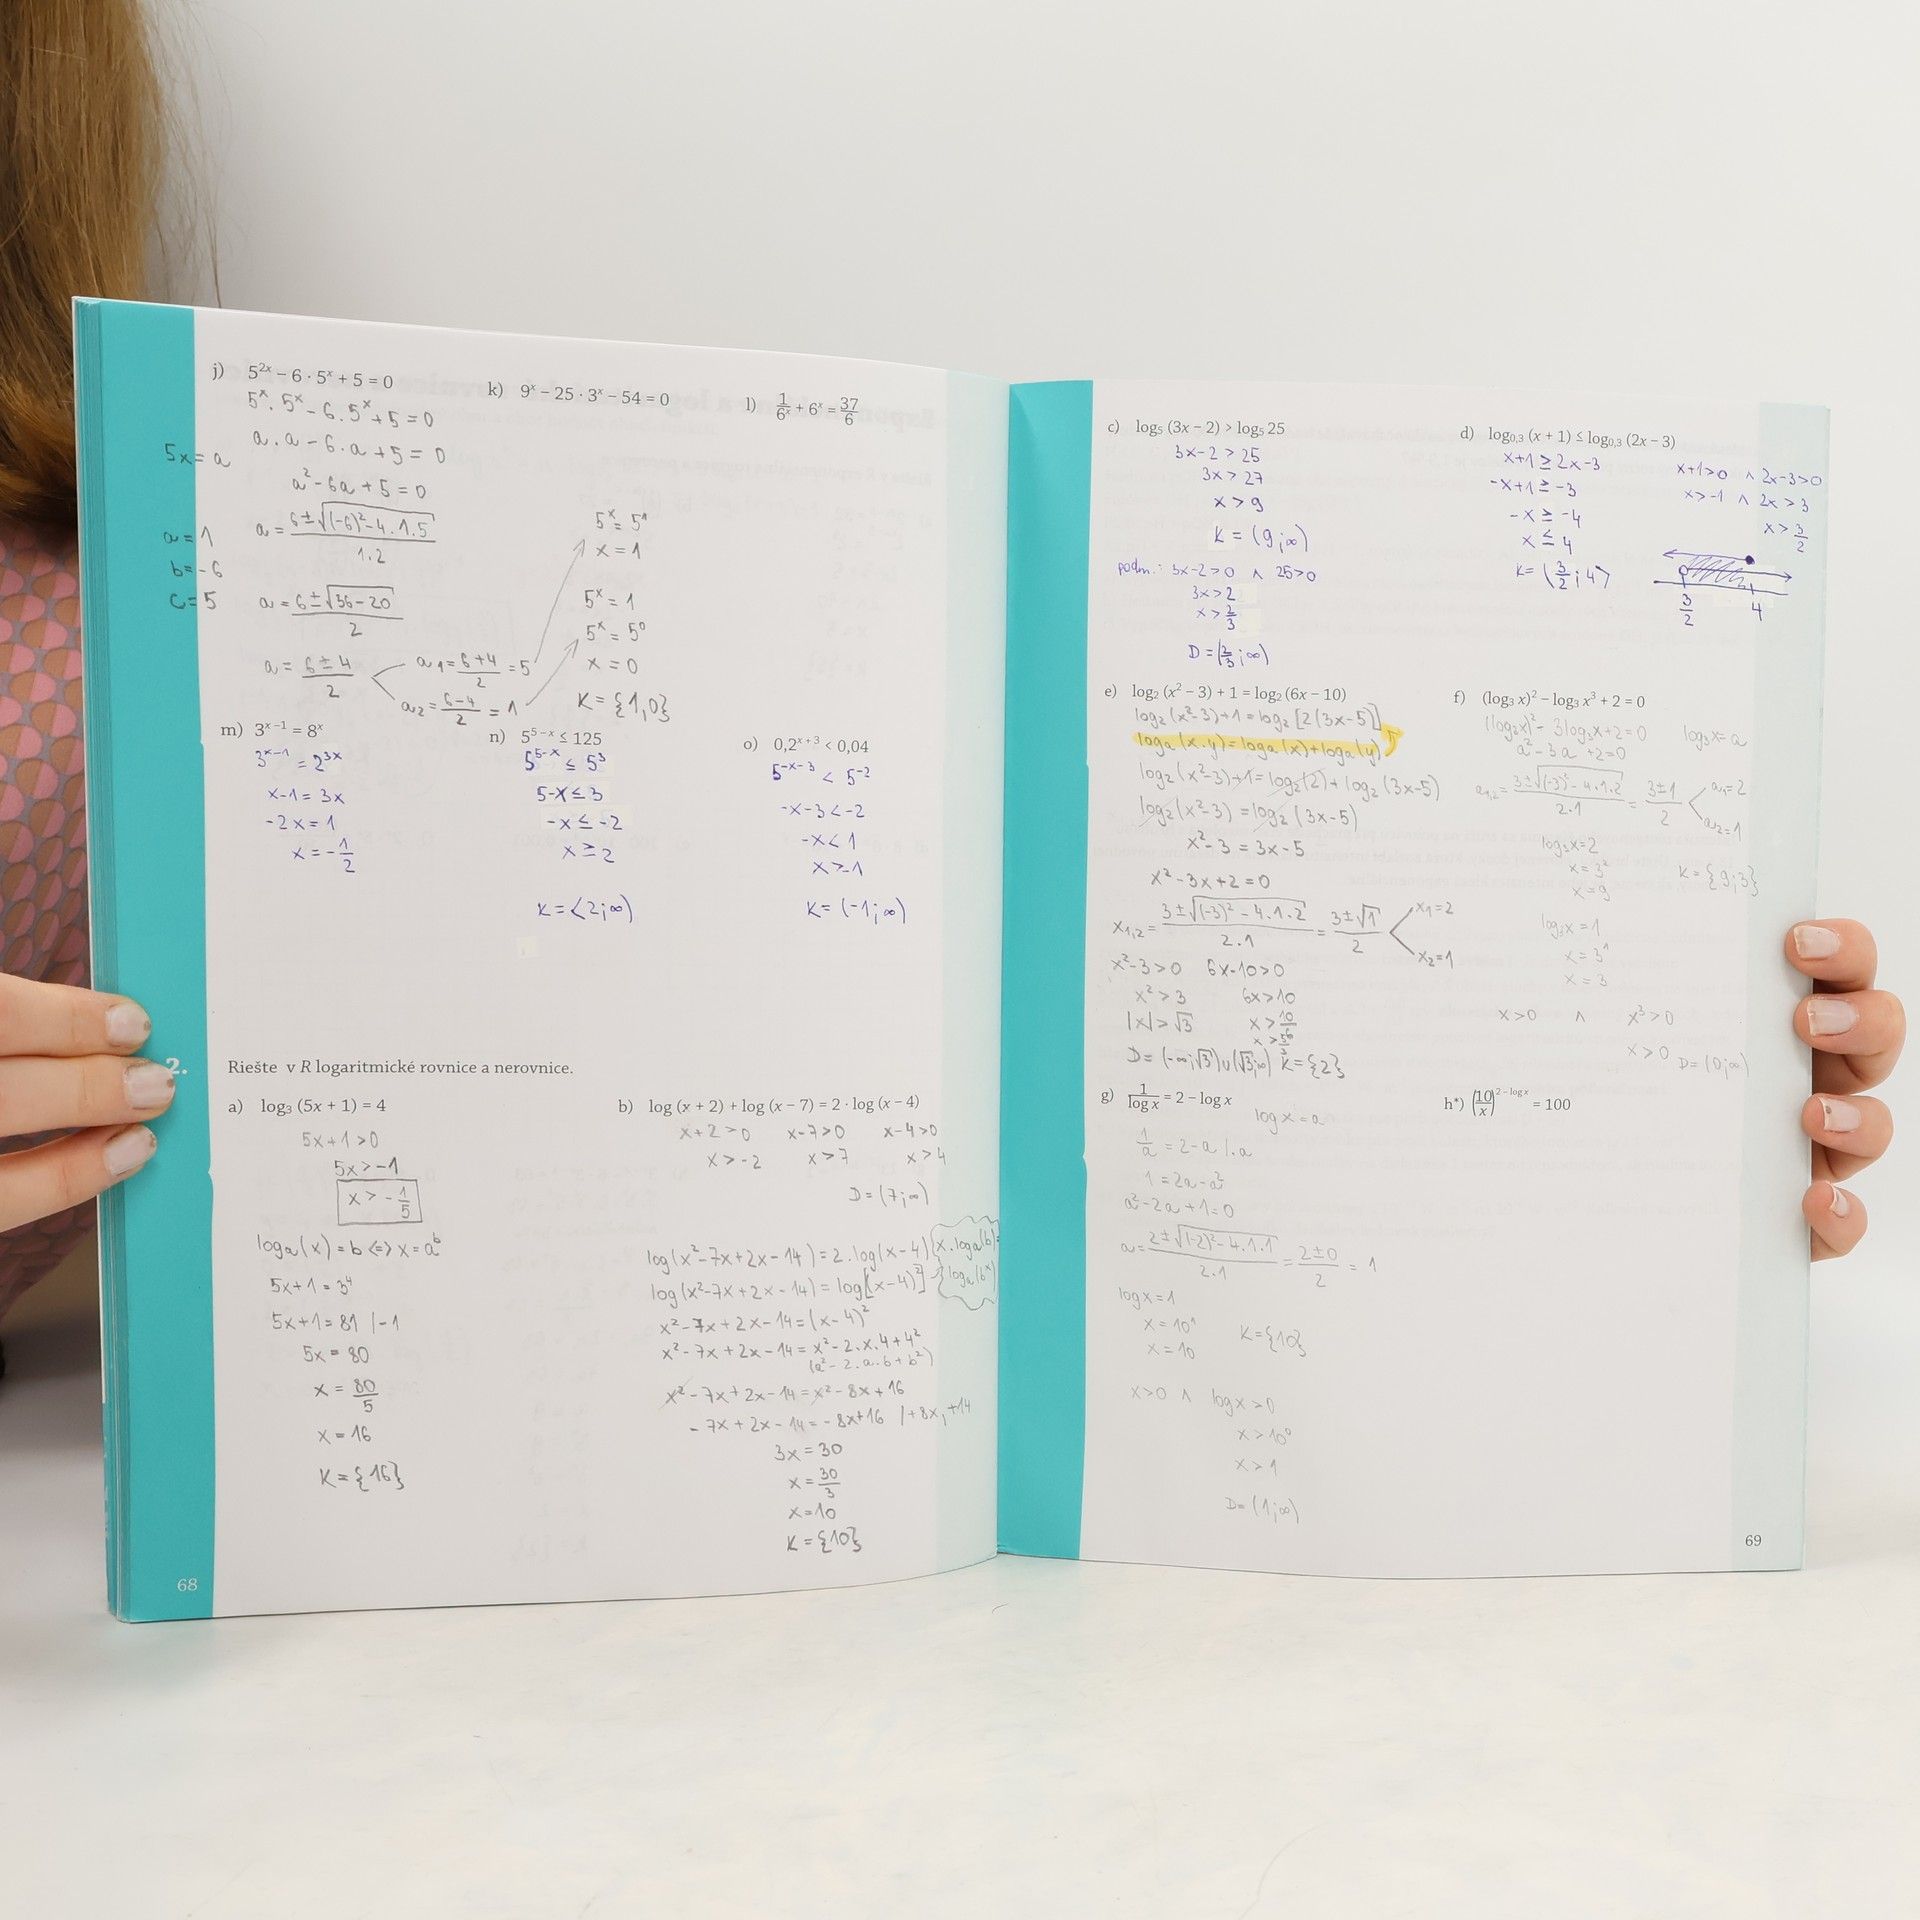 j) 5^{2x} − 6 · 5^x + 5 = 0
5^x . 5^x − 6 . 5^x + 5 = 0
a . a − 6 . a + 5 = 0
5x = a
a² − 6a + 5 = 0
a = 1
b = −6
c = 5
a = (6 ± √((−6)² − 4 . 1 . 5)) / (1 . 2)
a = (6 ± √(36 − 20)) / 2
a = (6 ± 4) / 2
a1 = (6 + 4) / 2 = 5
a2 = (6 − 4) / 2 = 1
5^x = 5^1
x = 1
5^x = 1
5^x = 5^0
x = 0
K = {1,0}
k) 9^x − 25 · 3^x − 54 = 0
l) 1/6^x + 6^x = 37/6
m) 3^{x−1} = 8^x
3^{x−1} = 2^{3x}
x−1 = 3x
−2x = 1
x = −1/2
n) 5^{5−x} ≤ 125
5^{5−x} ≤ 5³
5−x ≤ 3
−x ≤ −2
x ≥ 2
K = ⟨2; ∞)
o) 0,2^{x+3} < 0,04
5^{−x−3} < 5^{−2}
−x−3 < −2
−x < 1
x > −1
K = (−1; ∞)
2. Riešte v R logaritmické rovnice a nerovnice.
a) log₃ (5x + 1) = 4
5x + 1 > 0
5x > −1
x > −1/5
log_a(x) = b <=> x = a^b
5x + 1 = 3⁴
5x + 1 = 81 /−1
5x = 80
x = 80/5
x = 16
K = {16}
b) log (x + 2) + log (x − 7) = 2 · log (x − 4)
x + 2 > 0 x − 7 > 0 x − 4 > 0
x > −2 x > 7 x > 4
D = (7; ∞)
log(x² − 7x + 2x − 14) = 2 . log(x − 4)
x . log_a(b) =
log_a(b^x)
log(x² − 7x + 2x − 14) = log[(x − 4)²]
x² − 7x + 2x − 14 = (x − 4)²
x² − 7x + 2x − 14 = x² − 2 . x . 4 + 4²
(a² − 2 . a . b + b²)
x² − 7x + 2x − 14 = x² − 8x + 16
− 7x + 2x − 14 = − 8x + 16 /+8x, +14
3x = 30
x = 30/3
x = 10
K = {10}
68
c) log₅ (3x − 2) > log₅ 25
3x − 2 > 25
3x > 27
x > 9
K = (9; ∞)
podm.: 3x − 2 > 0 ∧ 25 > 0
3x > 2
x > 2/3
D = (2/3; ∞)
d) log₀,₃ (x + 1) ≤ log₀,₃ (2x − 3)
x + 1 ≥ 2x − 3
−x + 1 ≥ −3
−x ≥ −4
x ≤ 4
K = (3/2; 4⟩
x + 1 > 0 ∧ 2x − 3 > 0
x > −1 ∧ 2x > 3
x > 3/2
3/2 4
e) log₂ (x² − 3) + 1 = log₂ (6x − 10)
log₂ (x² − 3) + 1 = log₂ [2(3x − 5)]
log_a (x . y) = log_a (x) + log_a (y)
log₂ (x² − 3) + 1 = log₂ (2) + log₂ (3x − 5)
log₂ (x² − 3) = log₂ (3x − 5)
x² − 3 = 3x − 5
x² − 3x + 2 = 0
x1,2 = (3 ± √((−3)² − 4 . 1 . 2)) / (2 . 1) = (3 ± √1) / 2
x1 = 2
x2 = 1
x² − 3 > 0 6x − 10 > 0
x² > 3 6x > 10
|x| > √3 x > 10/6
x > 5/3
D = (−∞; √3) ∪ (√3; ∞) K = {2}
f) (log₃ x)² − log₃ x³ + 2 = 0
(log₃x)² − 3log₃x + 2 = 0 log₃x = a
a² − 3a + 2 = 0
a1,2 = (3 ± √((−3)² − 4 . 1 . 2)) / (2 . 1) = (3 ± 1) / 2
a1 = 2
a2 = 1
log₃x = 2
x = 3²
x = 9
K = {9; 3}
log₃x = 1
x = 3^1
x = 3
x > 0 ∧ x³ > 0
x > 0 D = (0; ∞)
g) 1/log x = 2 − log x
log x = a
1/a = 2 − a / . a
1 = 2a − a²
a² − 2a + 1 = 0
a = (2 ± √((−2)² − 4 . 1 . 1)) / (2 . 1) = (2 ± 0) / 2 = 1
log x = 1
x = 10^1
x = 10
K = {10}
x > 0 ∧ log x > 0
x > 10^0
x > 1
D = (1; ∞)
h*) (10/x)^{2 − log x} = 100
69